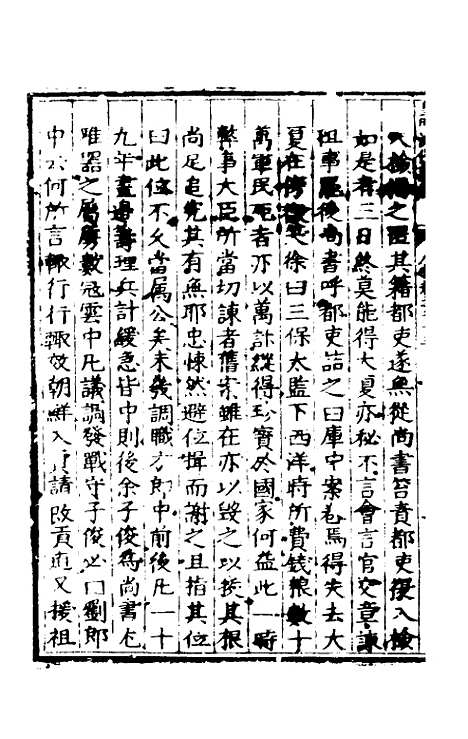 入檢得之匿其籍都吏遂無從尚書笞責都吏復入檢
如是者三日終莫能得大夏亦秘不言會言官交章諫
徂事寢後尚書呼都吏詰之曰庫中案卷焉得失去大
夏在傍徐曰三保太監下西洋時所費錢粮數十
萬軍民死者亦以萬計縱得珍寳於國家何益此一時
弊事大臣所當切諫者舊案雖在亦以毀之以拔其根
尚足追究其有無耶忠悚然避位揖而謝之且指其位
曰此位不久當属公矣未幾調職方郎中前後凡一十
九年畫邊籌理兵計緩急皆中則後余子俊為尚書尤
唯器之屬虜數冦雲中凡議調發戰守子俊必曰劉郎
中云何所言輙行行輙效朝鮮入貢請改貢道又援祖